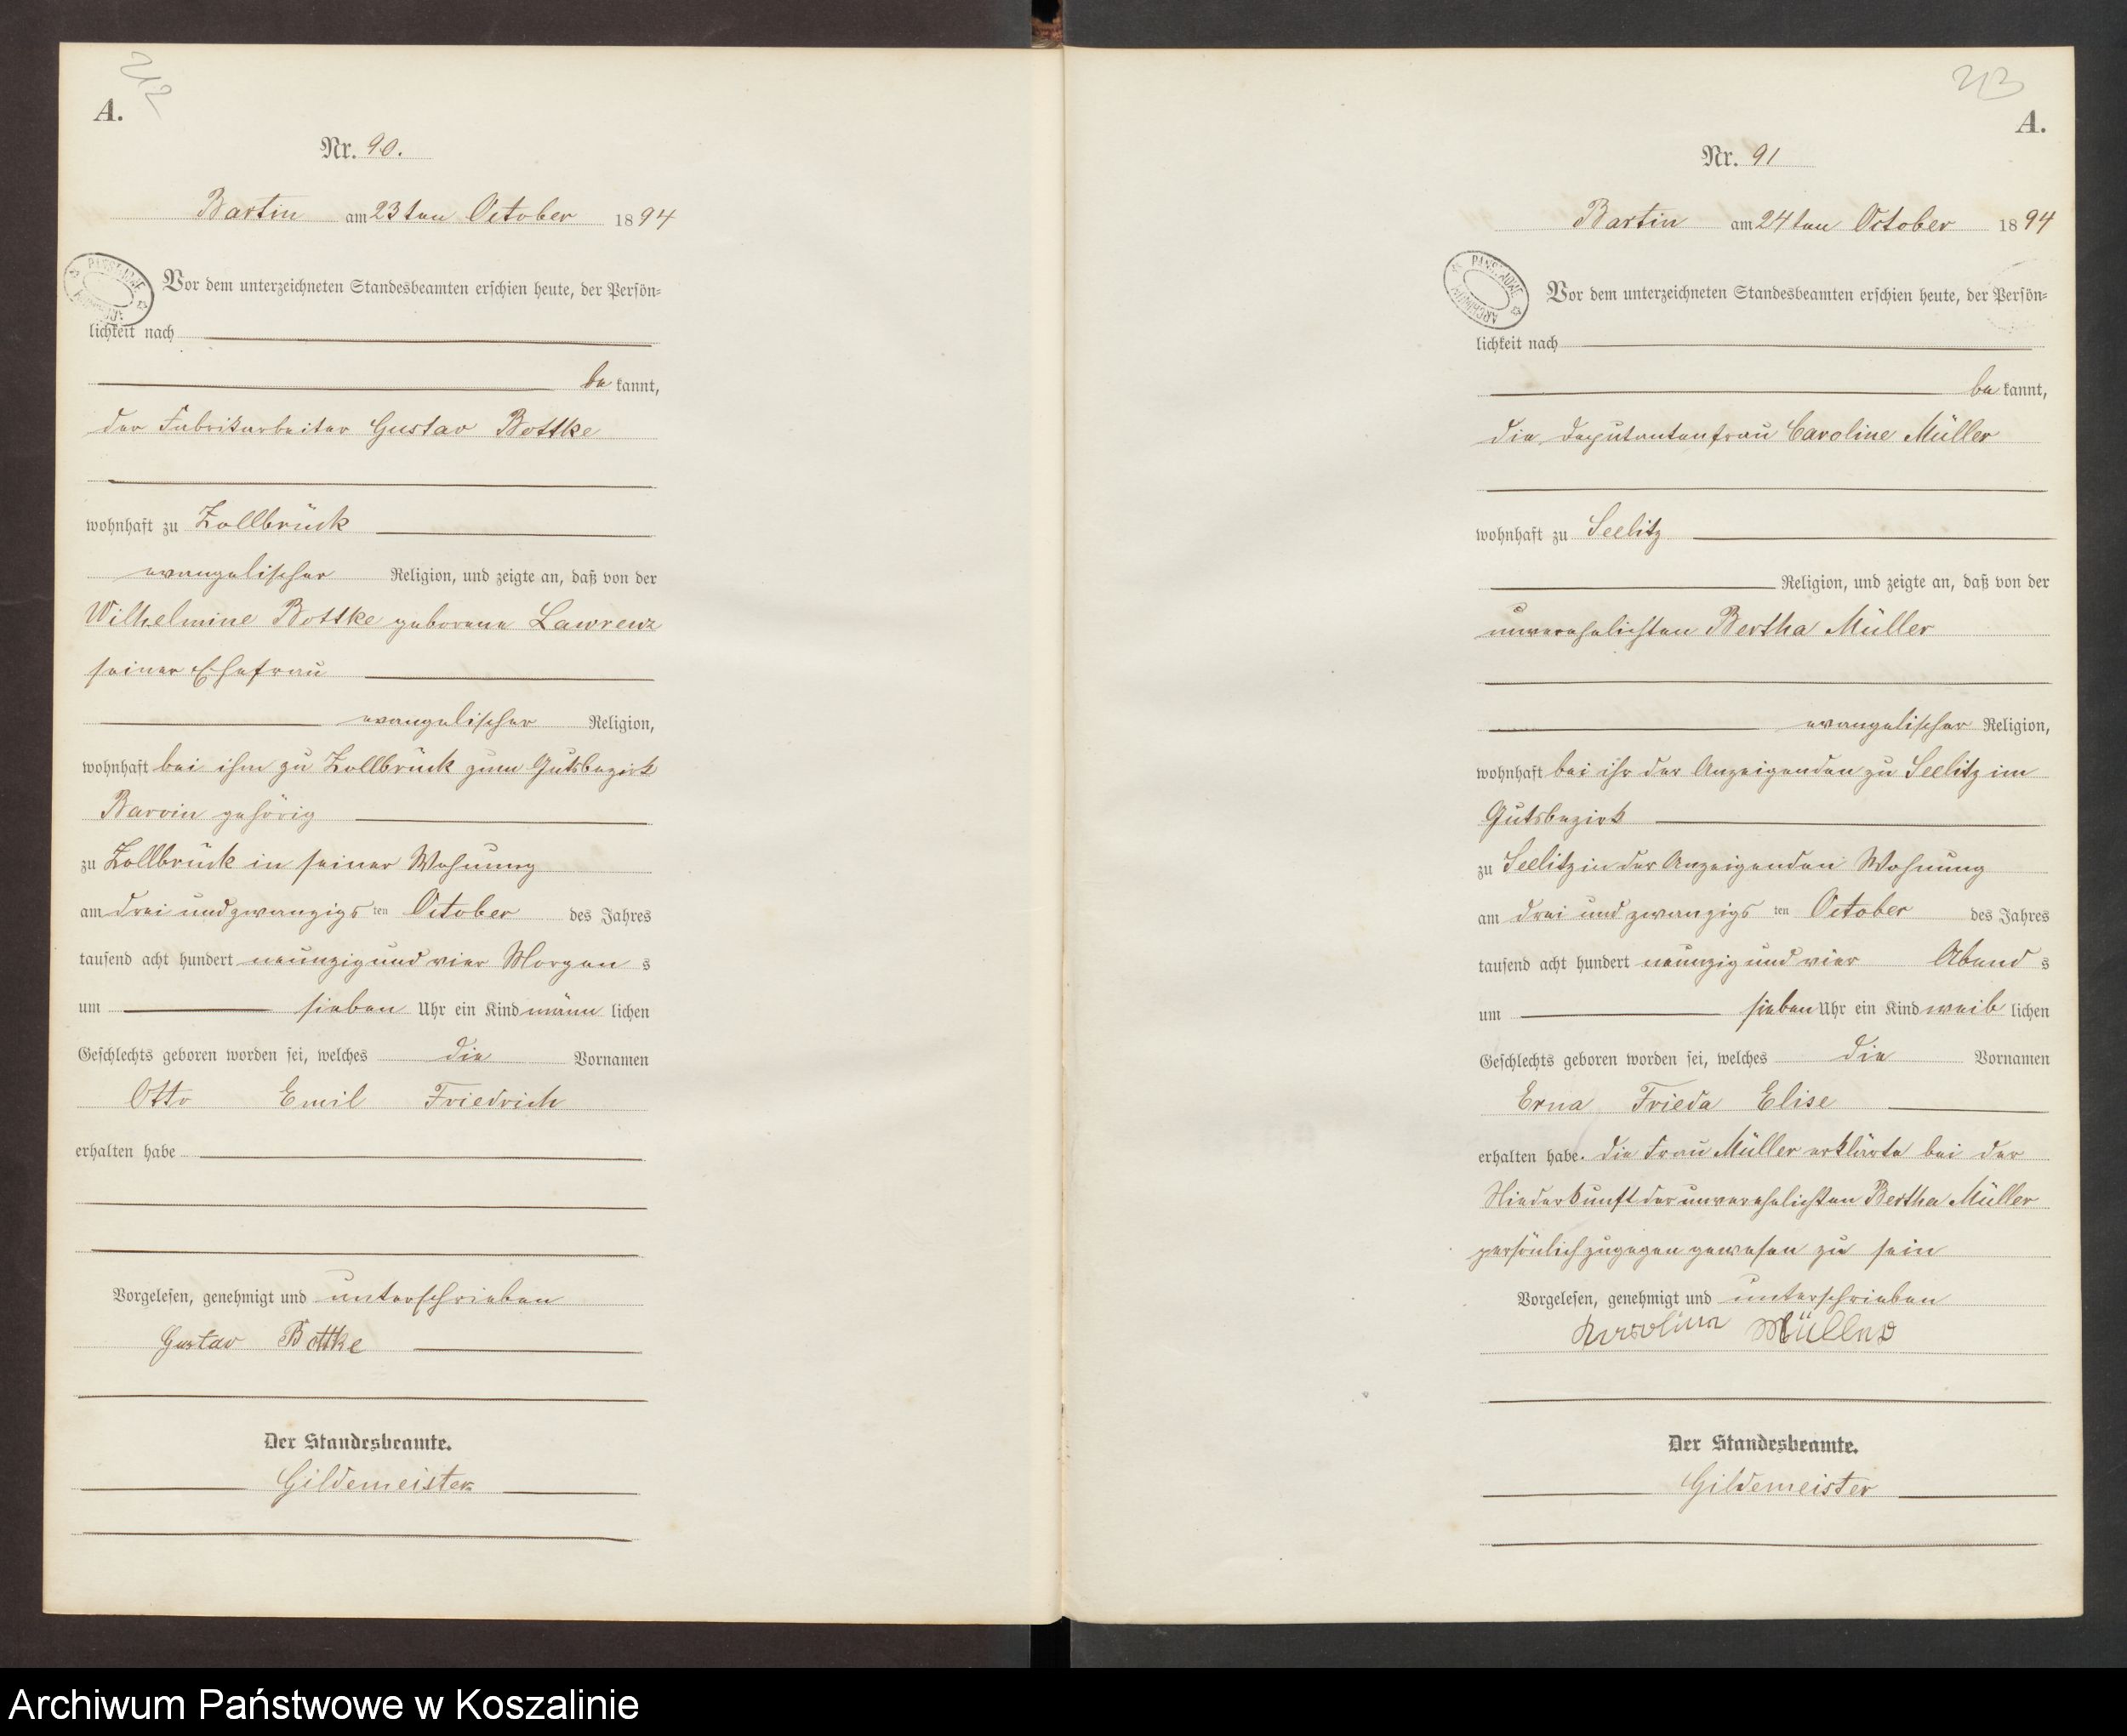 212
A.
Nr. 90.
Bartin am 23ten October 1894
Vor dem unterzeichneten Standesbeamten erschien heute, der Persön-
lichkeit nach
be kannt,
der Fabrikarbeiter Gustav Bottke
wohnhaft zu Zollbrück
evangelischer Religion, und zeigte an, daß von der
Wilhelmine Bottke geborene Lawrenz
seiner Ehefrau
evangelischer Religion,
wohnhaft bei ihm zu Zollbrück zum Gutsbezirk
Barvin gehörig
zu Zollbrück in seiner Wohnung
am drei und zwanzigs ten October des Jahres
tausend acht hundert neunzig und vier Morgen s
um sieben Uhr ein Kind männ lichen
Geschlechts geboren worden sei, welches die Vornamen
Otto Emil Friedrich
erhalten habe
Vorgelesen, genehmigt und unterschrieben
Gustav Bottke
Der Standesbeamte.
Gildemeister
213
A.
Nr. 91
Bartin am 24ten October 1894
Vor dem unterzeichneten Standesbeamten erschien heute, der Persön-
lichkeit nach
be kannt,
die Deputantenfrau Caroline Müller
wohnhaft zu Seelitz
Religion, und zeigte an, daß von der
unverehelichten Bertha Müller
evangelischer Religion,
wohnhaft bei ihr der Anzeigenden zu Seelitz im
Gutsbezirk
zu Seelitz in der Anzeigenden Wohnung
am drei und zwanzigs ten October des Jahres
tausend acht hundert neunzig und vier Abend s
um sieben Uhr ein Kind weib lichen
Geschlechts geboren worden sei, welches die Vornamen
Erna Frieda Elise
erhalten habe. Die Frau Müller erklärte bei der
Niederkunft der unverehelichten Bertha Müller
persönlich zugegen gewesen zu sein
Vorgelesen, genehmigt und unterschrieben
Karolina Müller
Der Standesbeamte.
Gildemeister
Archiwum Państwowe w Koszalinie